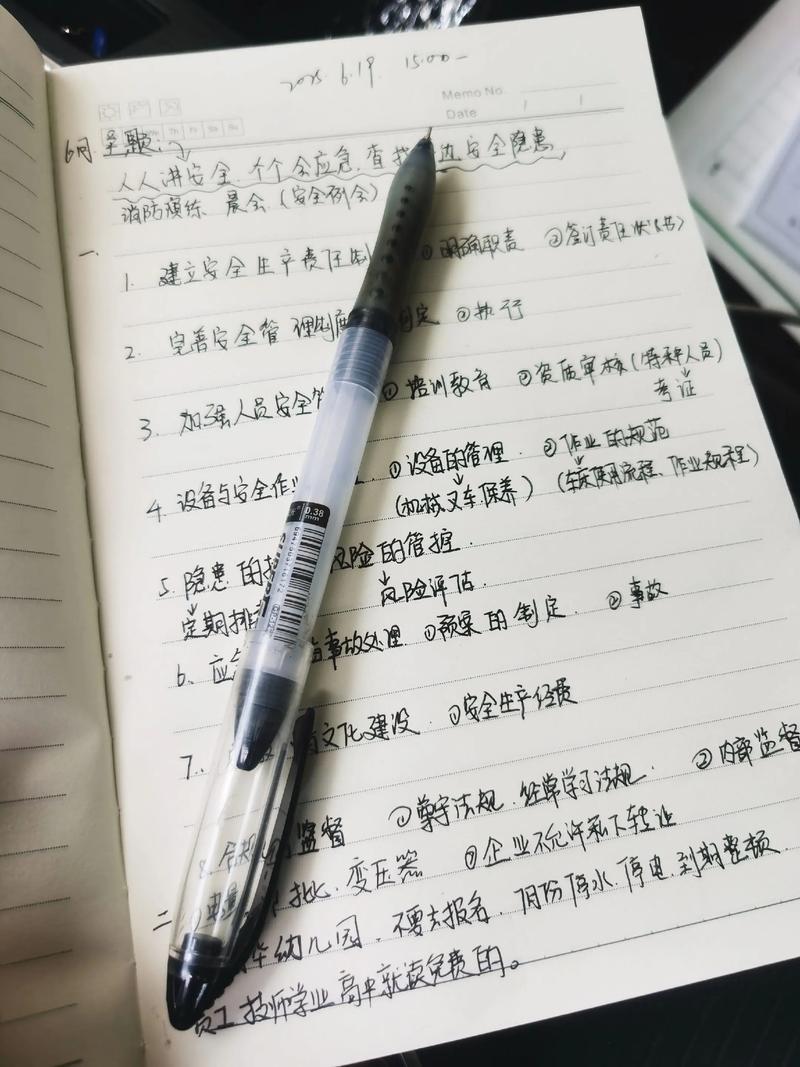 2025.6.19 15:00-
Memo No.
Date / /
6月主题:
人人讲安全、个个会应急、查找 边安全隐患,
消防演练 晨会(安全例会)
一、
1. 建立安全生产责任制 ①明确职责 ②签订责任状(书)
2. 完善安全管理制度 制定 ②执行
3. 加强人员安全管 ① 培训教育 ②资质审核(特种人员)
考证
4. 设备与安全作业 ①设备的管理. ②作业的规范
(机械、叉车保养) (车床使用流程、作业规程)
5. 隐患的排 风险的管控.
定期排 风险评估.
6、应急 事故处理 ①预案的制定. ②事故
7. 文化建设. ①安全生产经费
8. 合规 监督 ①遵守法规.经常学习法规. ②内部监督
二 ①电 批、变压器 ②企业不允许私下转让
幼儿园、不要去报名、 月份停水、停电、到期整顿.
员工技师学业 高中就读免费的。
0.38
mm